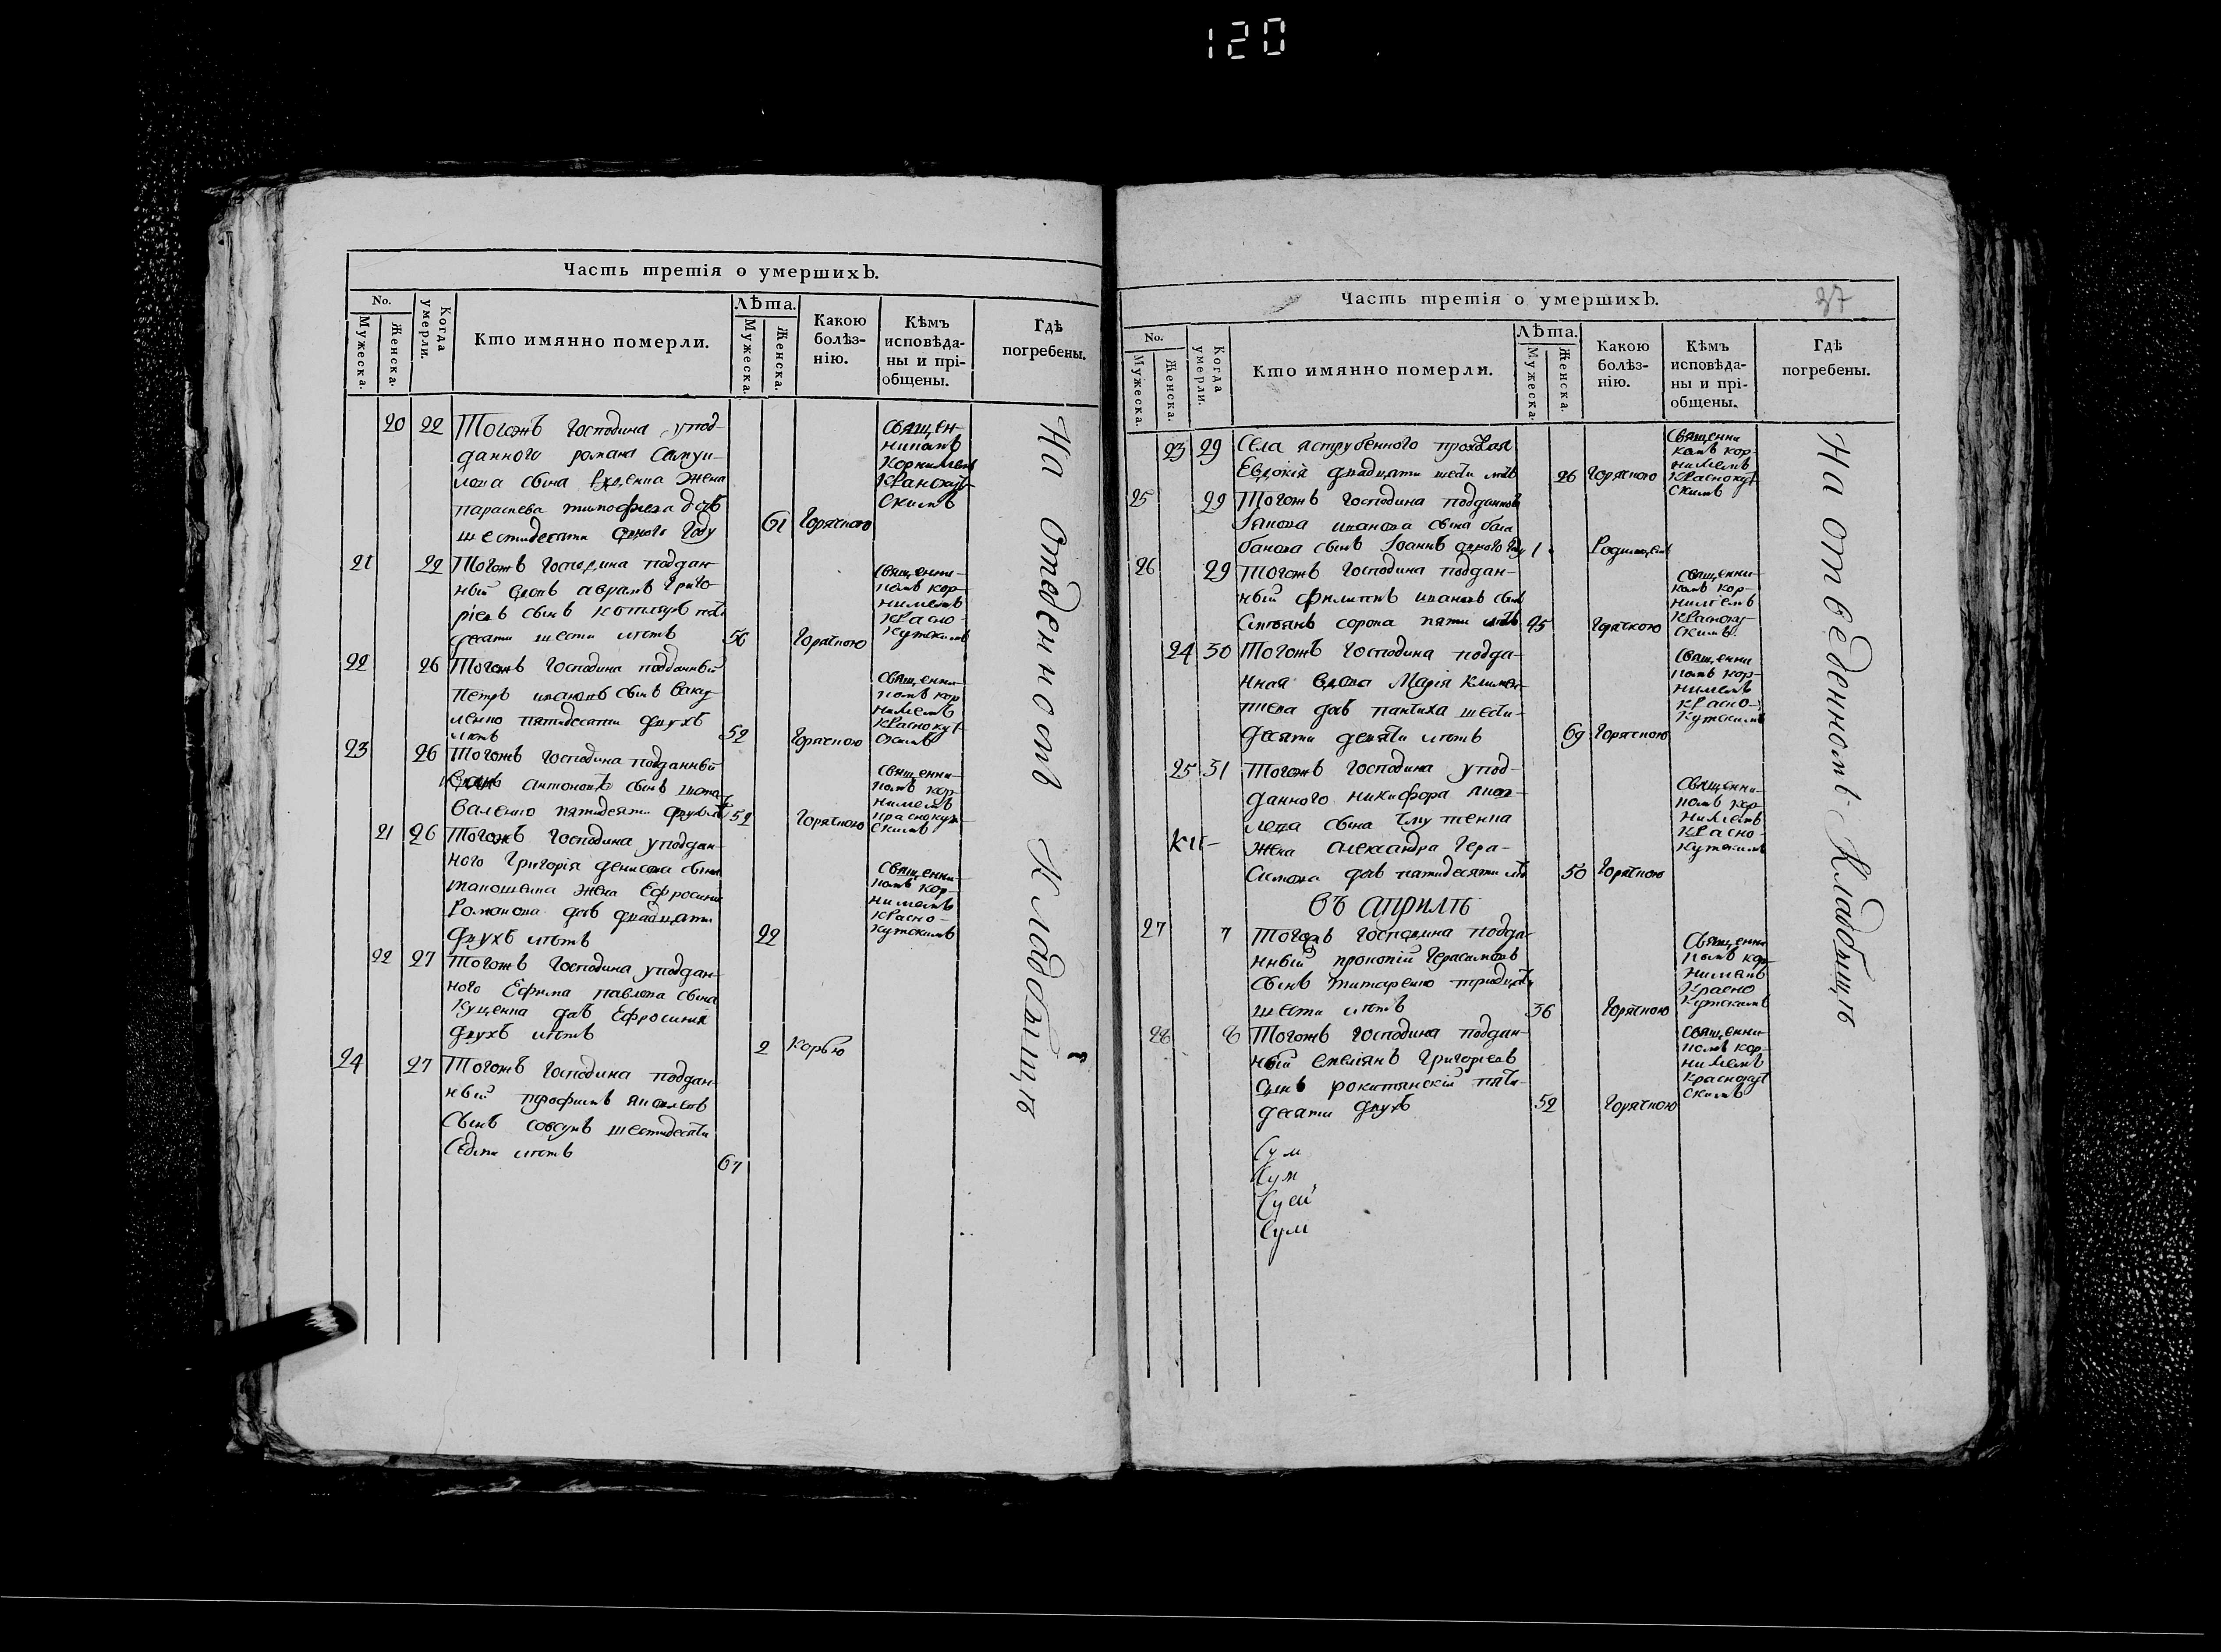 120
Часть третія о умершихъ.
No.
Мужеска.
Женска.
Когда умерли.
Кто имянно померли.
Лѣта.
Мужеска.
Женска.
Какою болѣз-
нію.
Кѣмъ
исповѣда-
ны и прі-
общены.
Гдѣ
погребены.
20 22 Тогожъ господина упод-
данного романа Самуи-
лова сына жена
параскева тимофеева доч
шестидесяти одного году 61 Горячкою
Священ-
никомъ
Корнилемъ
Краснокут-
скимъ
21 22 Тогожъ господина поддан-
ный вдовъ авраамъ Григо-
ріевъ сынъ котляръ
десяти шести летъ 56 Горячкою
Священни-
комъ кор-
нилемъ
Красно-
кутскимъ
22 26 Тогожъ господина подданный
петръ ивановъ сынъ Ваку-
ленко пятидесяти двухъ
летъ 52 Горячкою
Священни-
комъ кор
нилемъ
Краснокут-
скимъ
23 26 Тогожъ господина подданный
антоновъ сынъ
валенко пятидесяти двухъ 52 Горячкою
Священни-
комъ кор-
нилемъ
краснокут-
скимъ
21 26 Тогожъ господина уподдан-
ного Григорія денисова сына
жена Ефросинія
Романова доч двадцати
двухъ летъ 22
Священни-
комъ кор-
нилемъ
Красно-
кутскимъ
22 27 Тогожъ господина уподдан-
ного Ефима павлова сына
Куценка доч Ефросинія
двухъ летъ 2 Корью
24 27 Тогожъ господина поддан-
ный трофимъ сынъ
совсунъ шестидесяти
седми летъ 67
На отведеномъ Кладбищѣ
Часть третія о умершихъ.
37
No.
Мужеска.
Женска.
Когда умерли.
Кто имянно померли.
Лѣта.
Мужеска.
Женска.
Какою болѣз-
нію.
Кѣмъ
исповѣда-
ны и прі-
общены.
Гдѣ
погребены.
23 29 Села яструбенного
Евдокія двадцати шести летъ 26 Горячкою
Священни
комъ кор-
нилемъ
Краснокут-
скимъ
25 29 Тогожъ господина подданного
Якова иванова сына бала
банова сынъ Іоаннъ одного году 1
26 29 Тогожъ господина поддан-
ный филиппъ ивановъ сынъ
Стоянъ сорока пяти летъ 45 Горячкою
Священни-
комъ кор-
нилемъ
Краснокут-
скимъ
24 30 Тогожъ господина подда-
нная вдова Марія климен-
тиева доч шести-
десяти девяти летъ 69 Горячкою
Священни
комъ кор-
нилемъ
Красно-
кутскимъ
25 31 Тогожъ господина упод-
данного никифора
сына
Жена александра Гера-
симова доч пятидесяти летъ 50 Горячкою
Священни-
комъ кор-
нилемъ
Красно-
кутскимъ
въ априлѣ
27 7 Тогожъ господина подда-
нный прокопій Герасимовъ
сынъ титаренко тридцати
шести летъ 36 Горячкою
Священни
комъ кор-
нилемъ
Красно
кутскимъ
28 8 Тогожъ господина поддан-
ный емеліянъ Григоріевъ
сынъ рокитянскій пяти-
десяти двухъ 52 Горячкою
Священни-
комъ кор-
нилемъ
Краснокут
скимъ
Сум
Сум
Сум
На отведеномъ Кладбищѣ